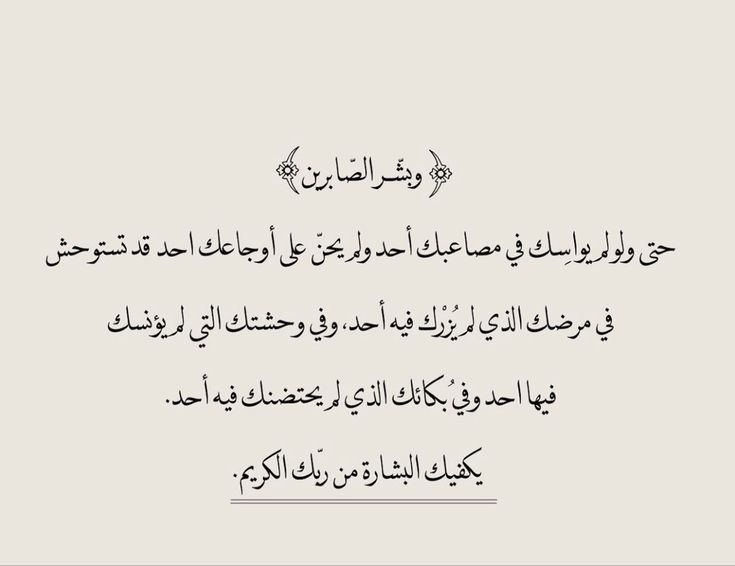 ﴿وبشّر الصّابرين﴾
حتى ولو لم يواسِك في مصاعبك أحد ولم يحنّ على أوجاعك احد قد تستوحش
في مرضك الذي لم يُزْرك فيه أحد، وفي وحشتك التي لم يؤنسك
فيها احد وفي بُكائك الذي لم يحتضنك فيه أحد.
يكفيك البشارة من ربّك الكريم.